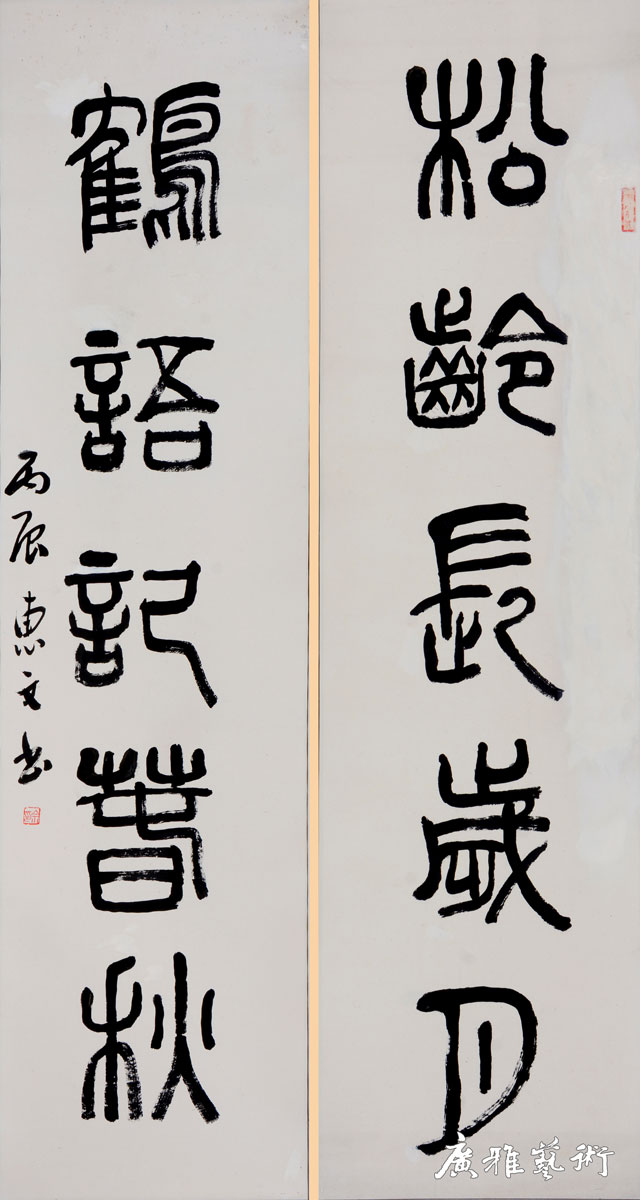 松齡長歲月
鶴語記春秋
丙辰惠文书
廣雅藝術